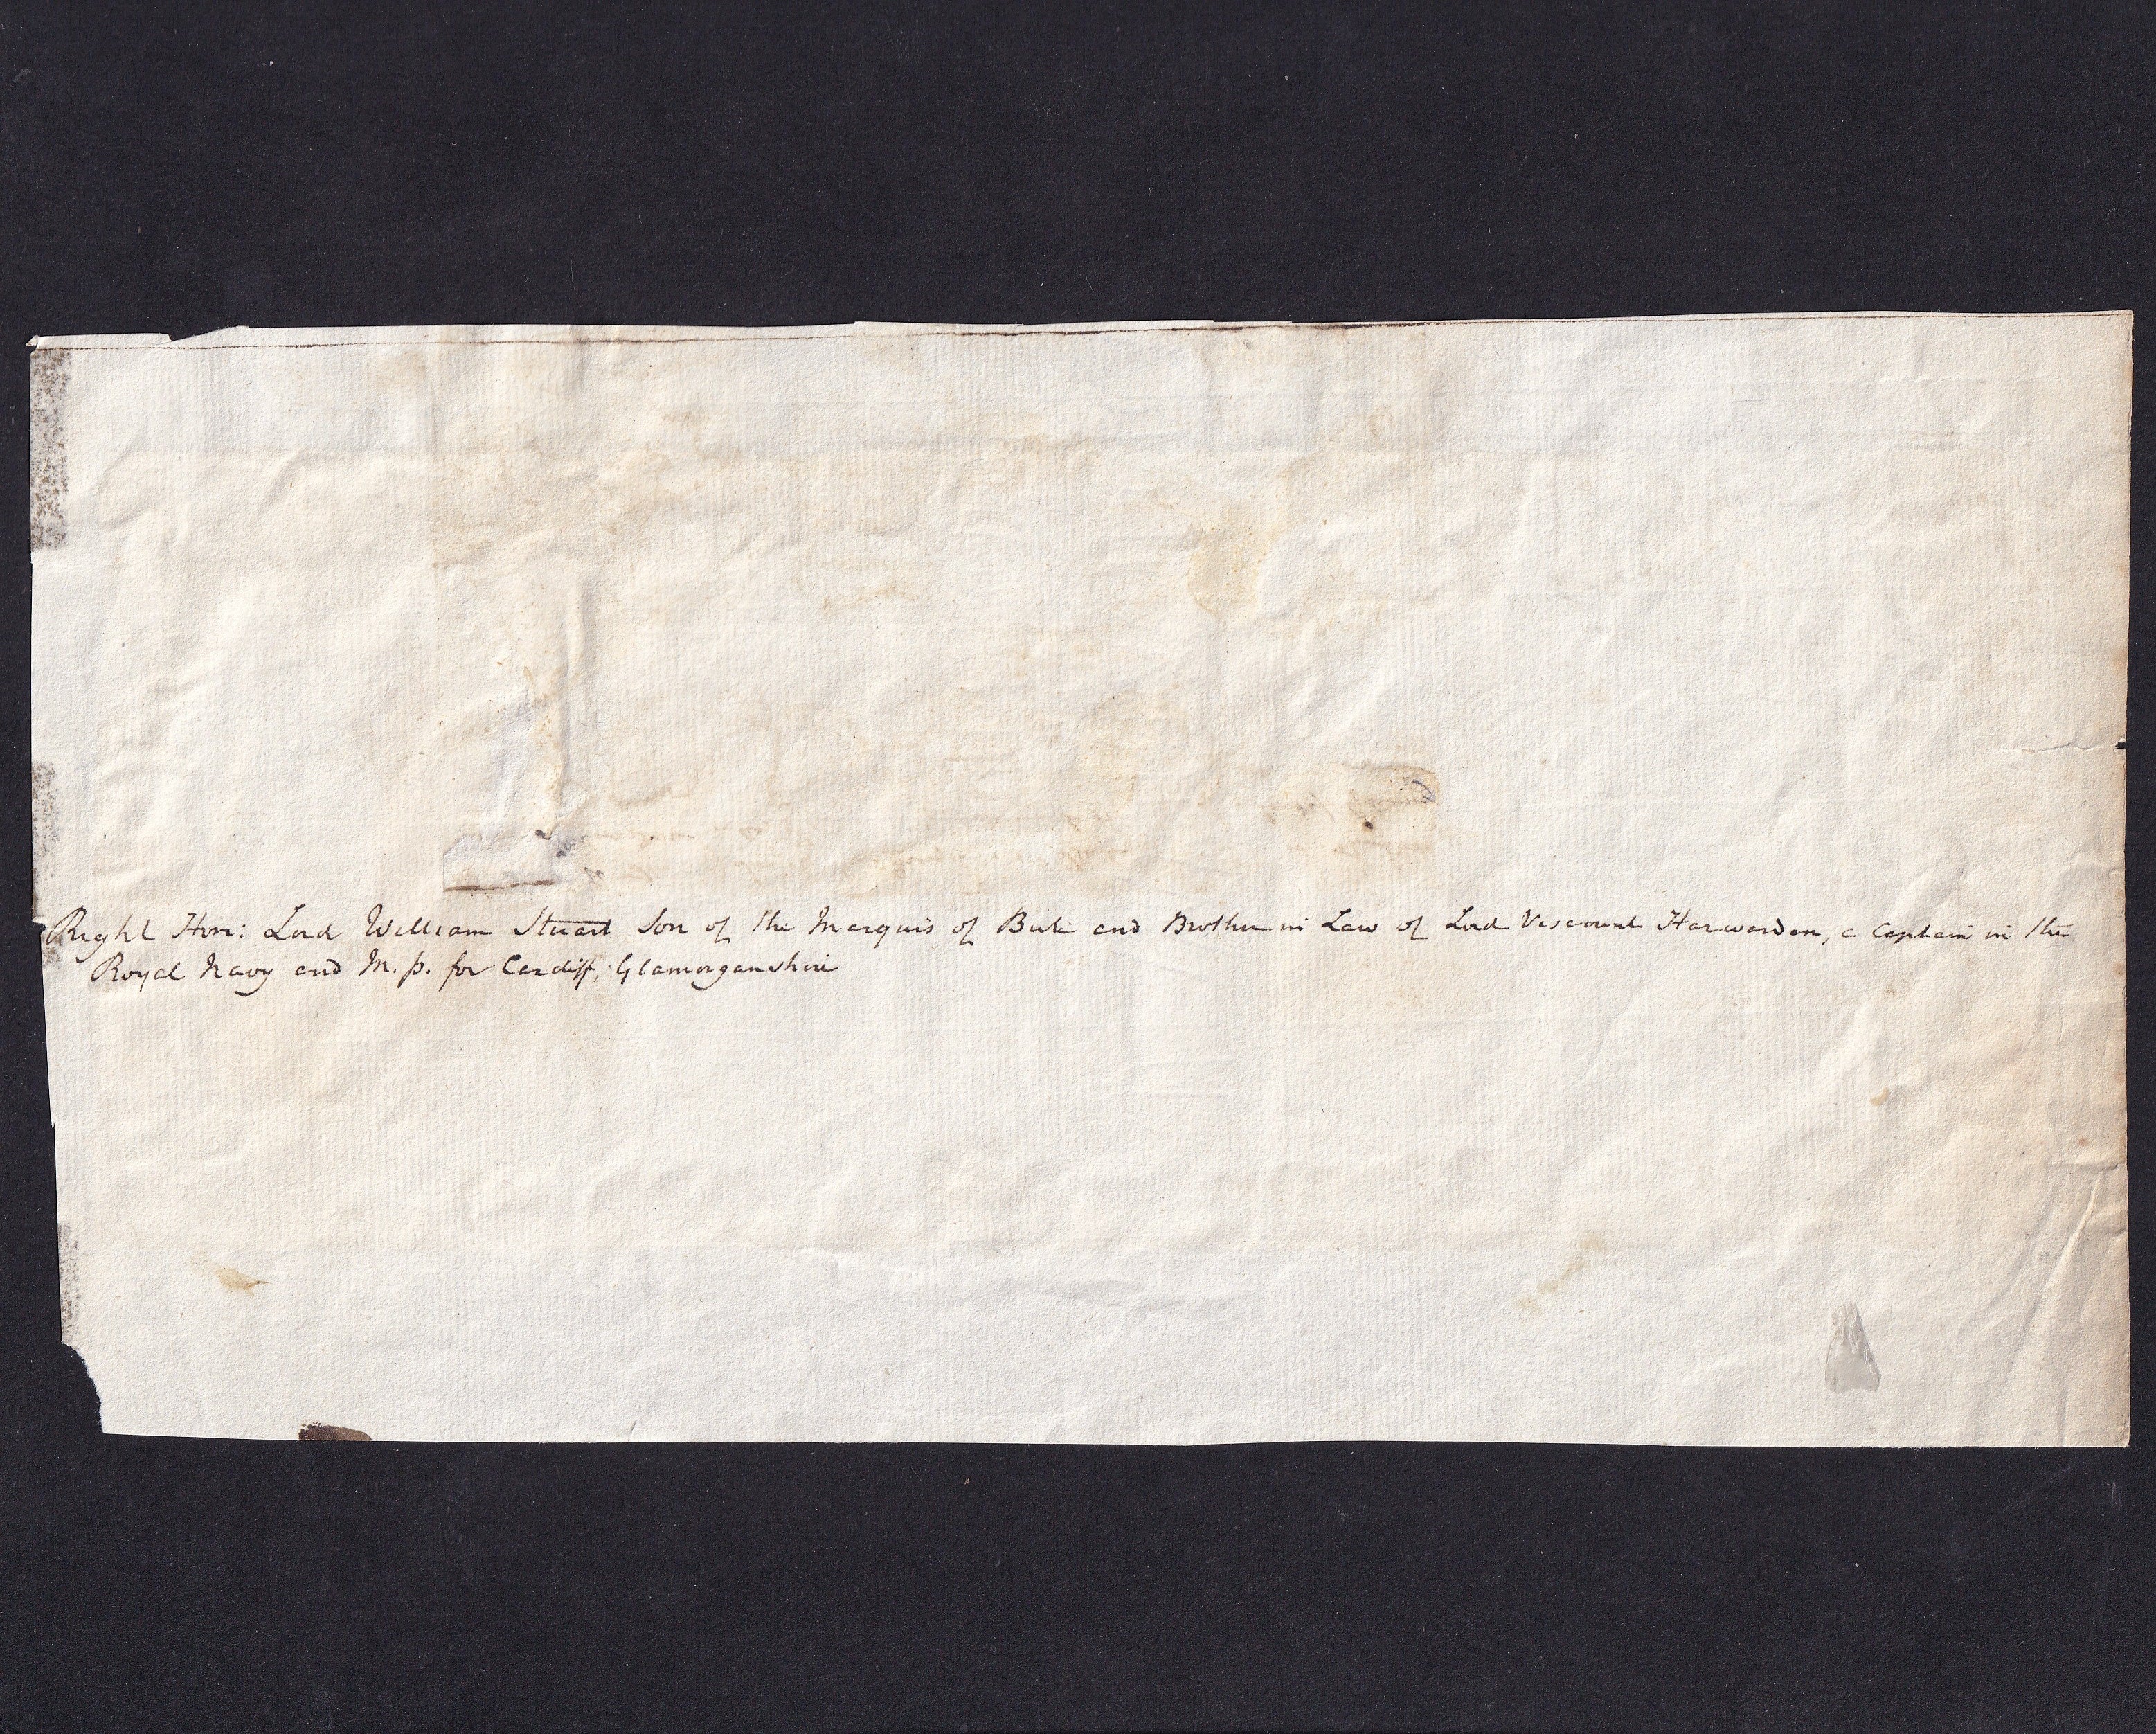 Right Hon: Lord William Stuart Son of the Marquis of Bute and Brother in Law of Lord Viscount Harwarden, a Captain in the
Royal Navy and M.p. for Cardiff, Glamorganshire